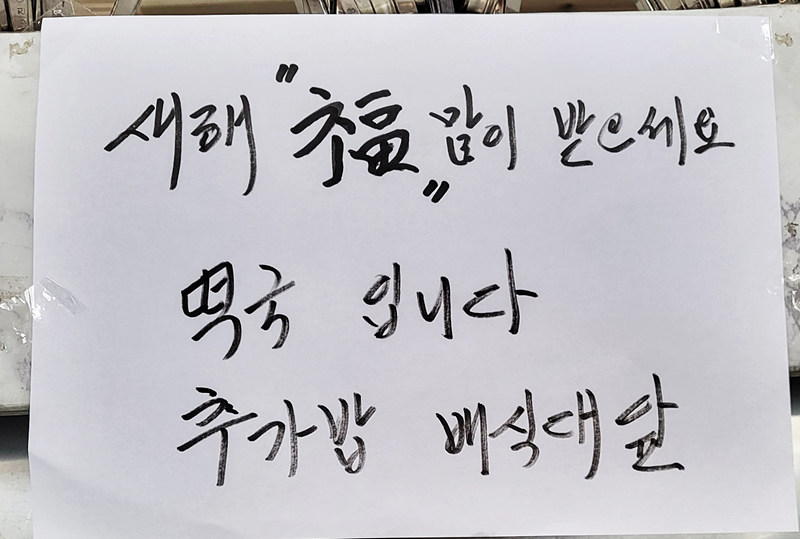 새해 "福" 많이 받으세요
떡국 입니다
추가밥 배식대 앞